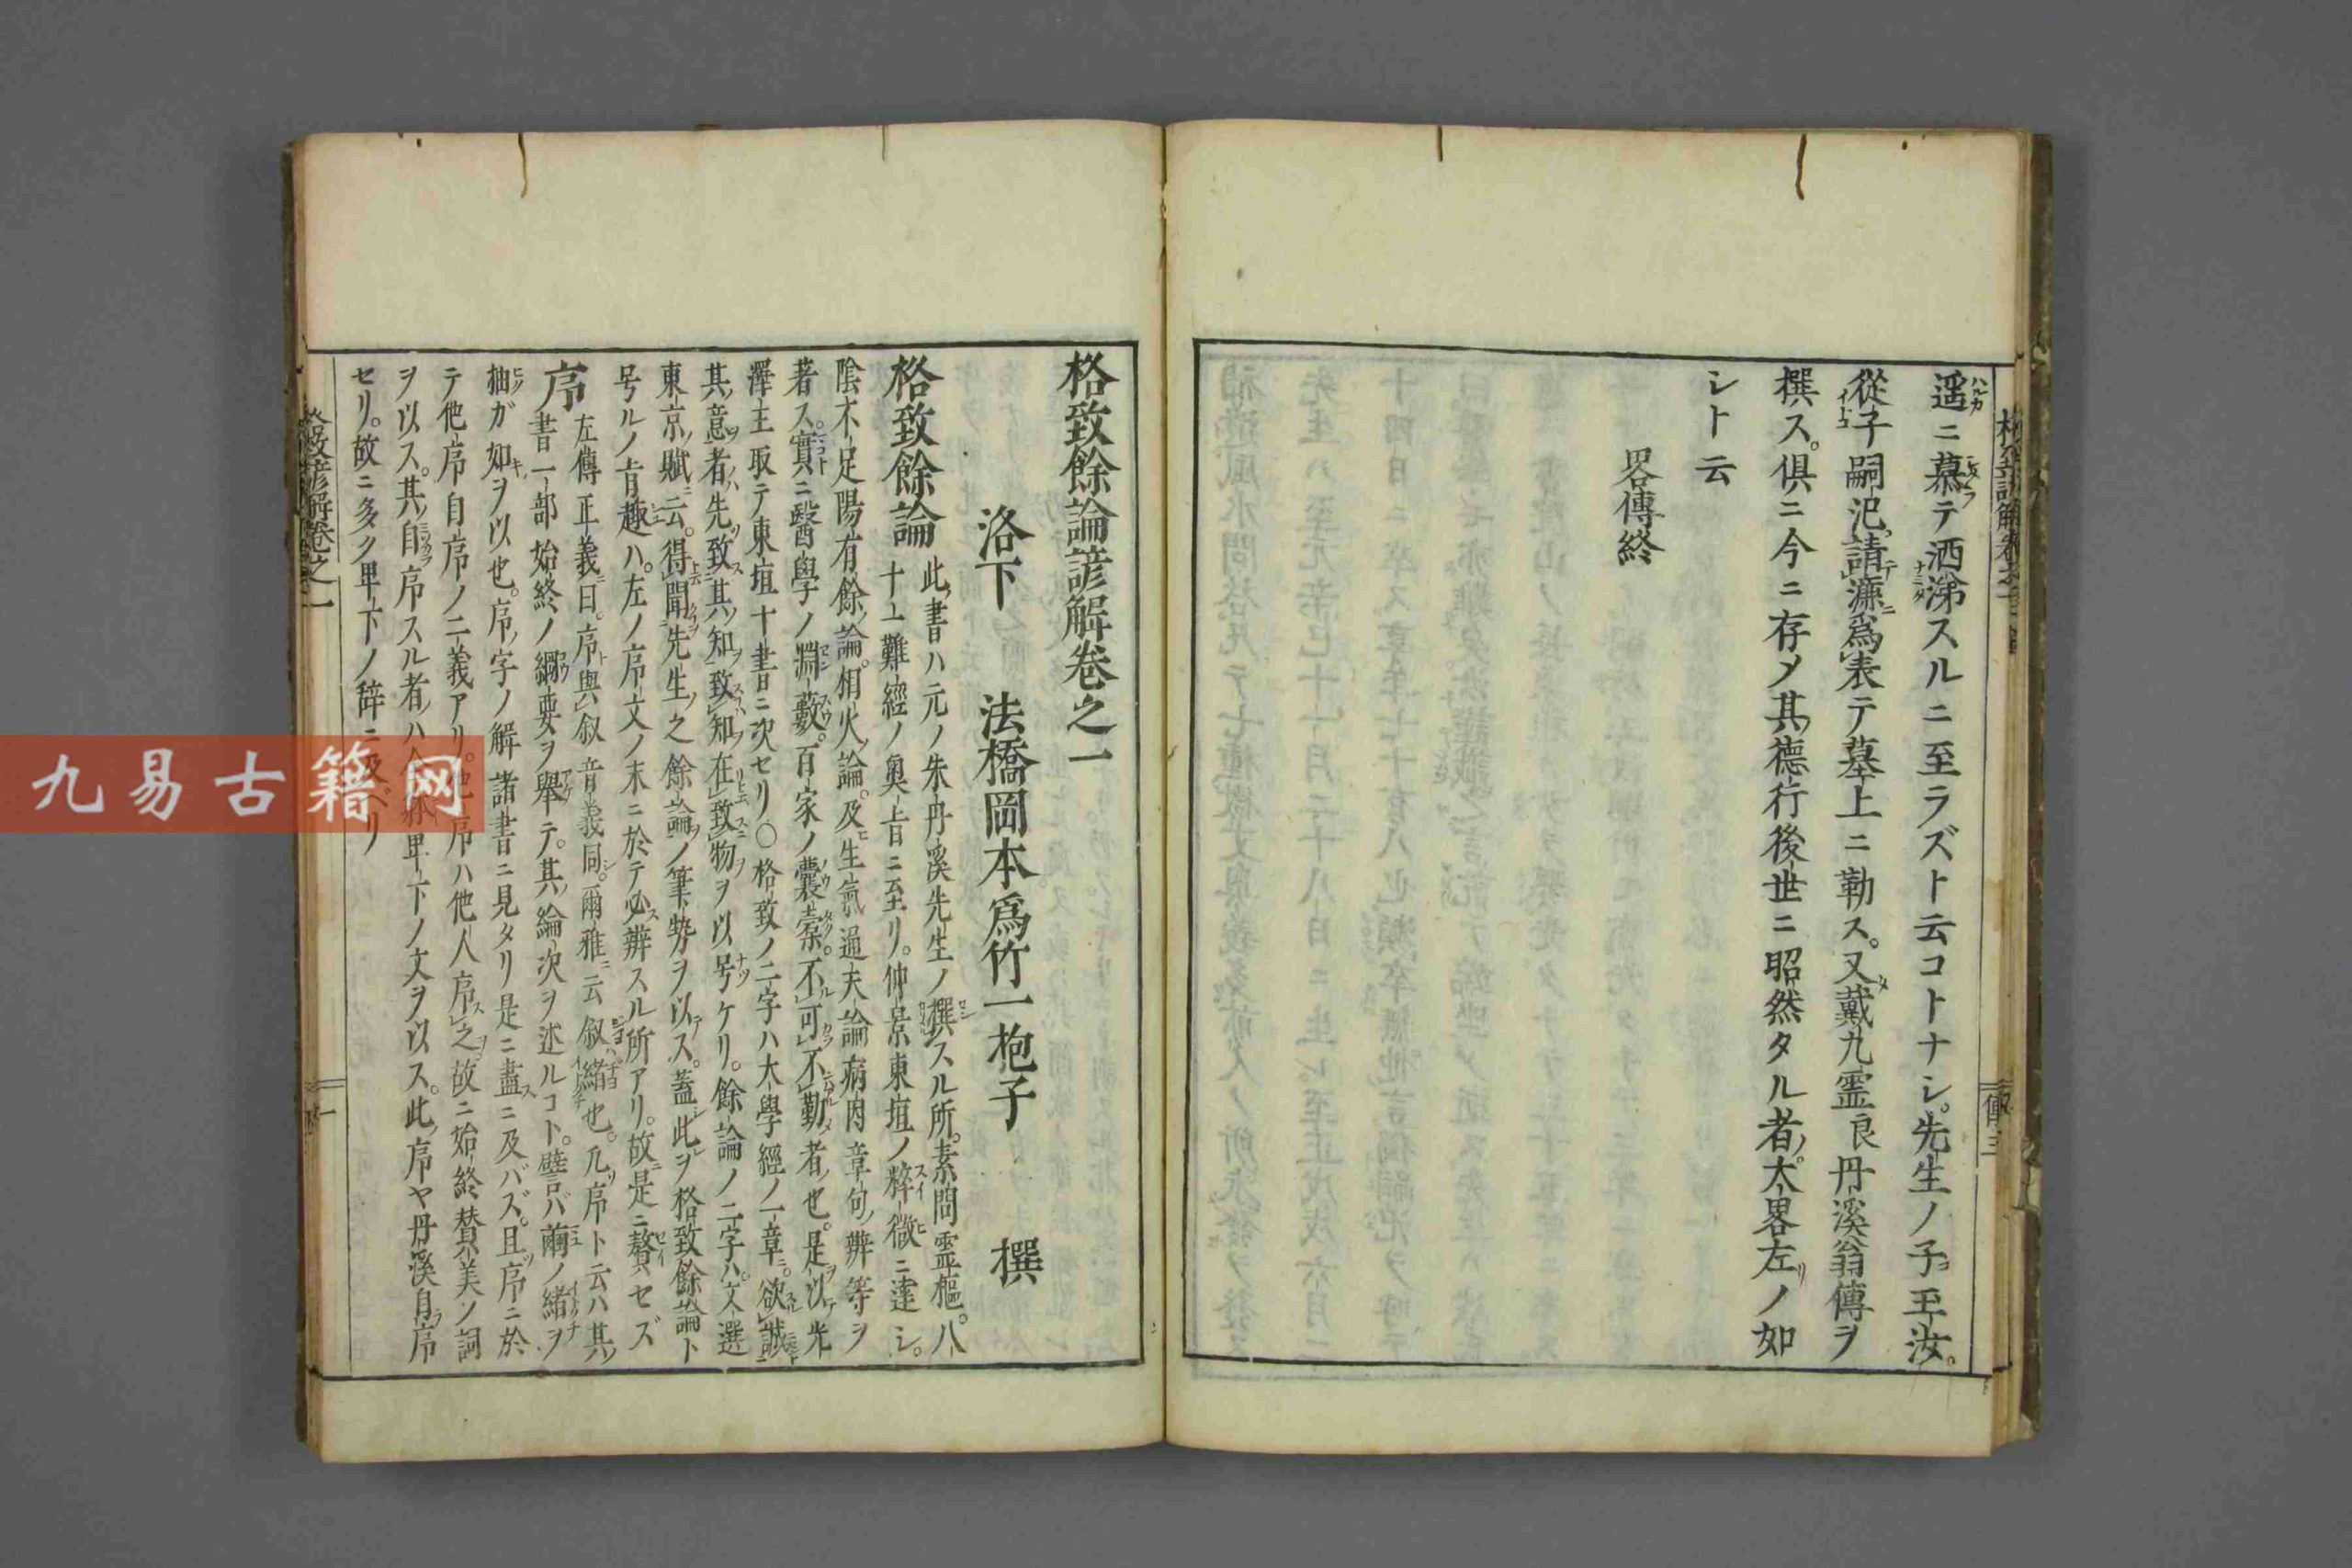 遥ニ慕テ洒涕スルニ至ラズト云コトナシ。先生ノ子王汝。
從子嗣氾。請濂爲表テ墓上ニ勒ス。又戴九霊良丹溪翁傳ヲ
撰ス。俱ニ今ニ存メ其德行後世ニ昭然タル者。大畧左ノ如
シト云
畧傳終
格致餘論諺解卷之一
洛下 法橋岡本爲竹一抱子 撰
格致餘論
此書ハ元ノ朱丹溪先生ノ撰スル所。素問霊樞。八
十一難經ノ奥旨ニ至リ。仲景東垣ノ粹微ニ達シ。
陰不足陽有餘論。相火論。及生氣通天論病因章句辨等ヲ
著ス。實ニ醫學ノ淵藪。百家ノ囊槖。不可不勤者也。是以光
澤主取テ東垣十書ニ次セリ〇格致ノ二字ハ大學經ノ一章ニ。欲誠
其意者先致其知致知在致物ヲ以号ケリ。餘論ノ二字ハ。文選
東京賦ニ云。得聞先生之餘論ノ筆勢ヲ以ス。蓋此ヲ格致餘論ト
号ルノ旨趣ハ。左ノ序文ノ末ニ於テ必辨スル所アリ。故ニ是ニ贅セズ
序
左傳正義ニ曰。序與叙音義同。爾雅ニ云叙緒也。凡序ト云ハ其
書一部始終ノ綱要ヲ擧テ。其論次ヲ述ルコト。譬バ繭ノ緒ヲ
抽ガ如キヲ以也。序字ノ解諸書ニ見タリ是ニ盡ニ及バズ。且序ニ於
テ他序自序ノ二義アリ。他序ハ他人序之。故ニ始終賛美ノ詞
ヲ以ス。其自序スル者ハ卑下ノ文ヲ以ス。此序ヤ丹溪自序
セリ。故ニ多ク卑下ノ辞ニ及ベリ
格致諺解卷之一
一
傳三
九易古籍网